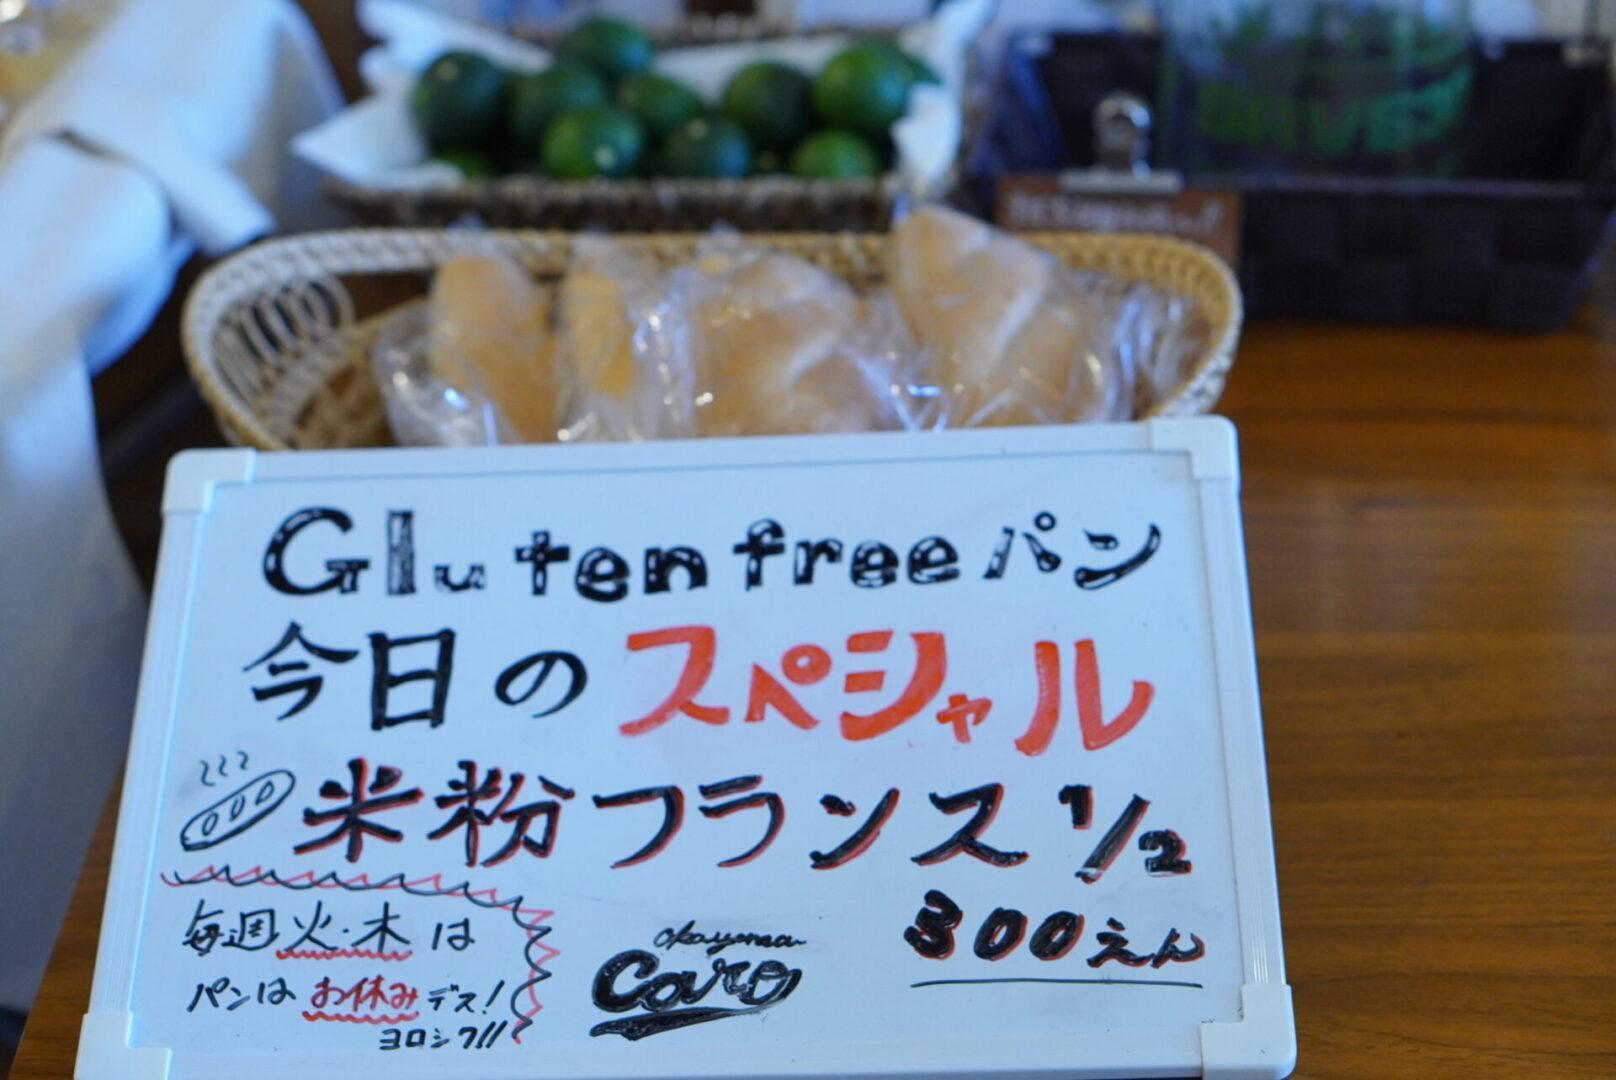 Gluten freeパン
今日のスペシャル
米粉フランス 1/2
300えん
毎週火・木は
パンはお休みデス!
ヨロシク!!
okayama
Caro